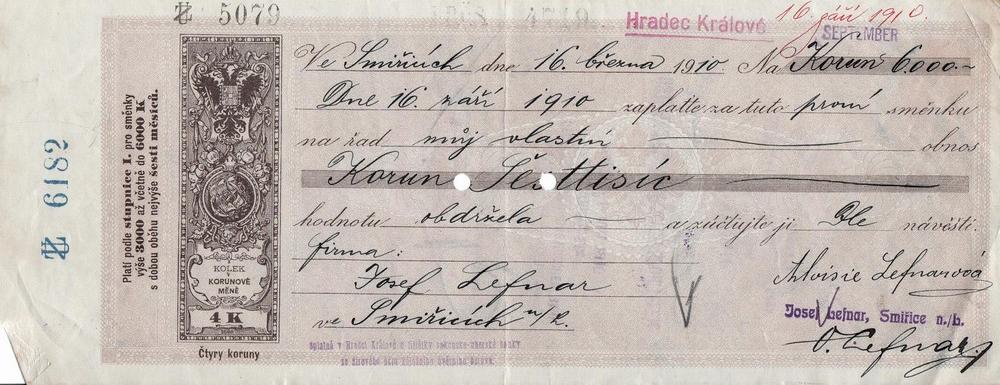 № 5079
Hradec Králové
16. září 1910.
SEPTEMBER
Ve Smiřicích dne 16. března 1910. Na Korun 6.000.-
Dne 16. září 1910 zaplaťte za tuto první směnku
na řad můj vlastní obnos
Korun Šesttisíc
hodnotu obdržela a zúčtujte ji Dle návěští.
firma:
Josef Lefnar
ve Smiřicích n/L.
Aloisie Lefnarová
Josef Lefnar, Smiřice n./L.
Lefnar
splatna v Hradci Králové u filiálky rakousko-uherské banky
№ 6182
Platí podle stupnice I. pro směnky
výše 3000 až včetně do 6000 K
s dobou oběhu nejvýše šesti měsíců.
KOLEK
V
KORUNOVÉ
MĚNĚ
4 K
Čtyry koruny